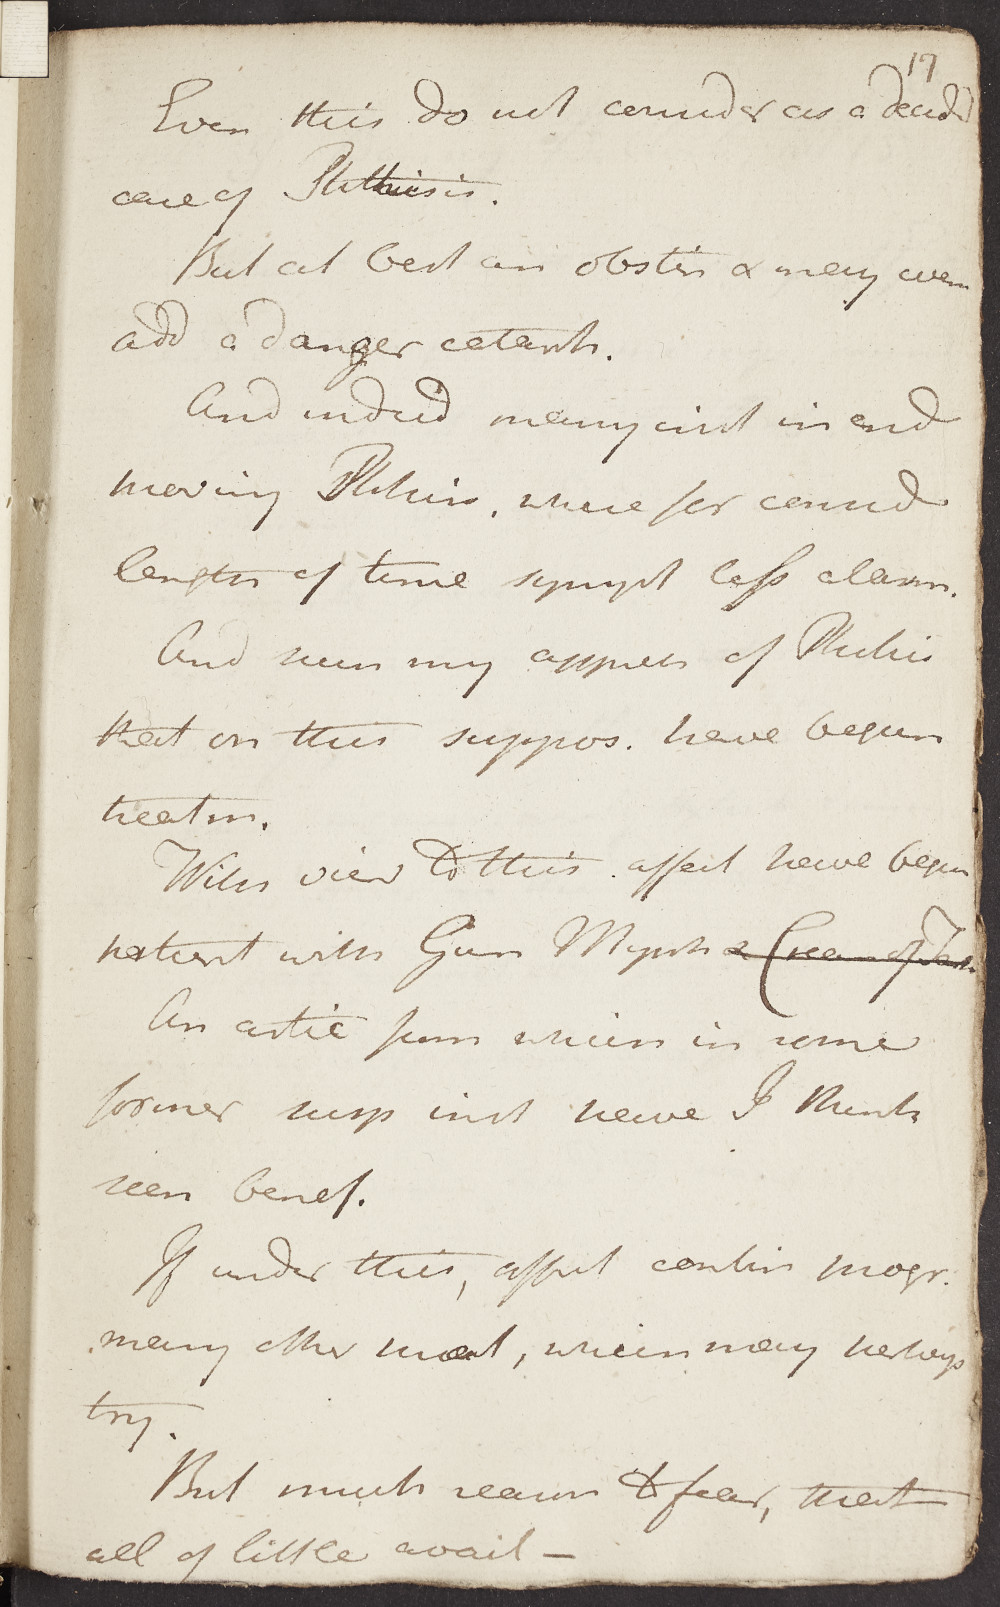 17
Even this do not consider as a decid
case of Phthisis.
But at best an obstin & may even
add a danger catarrh.
And indeed many inst in end
moving Phthisis, where for consid
length of time sympt less alarm.
And seen my appreh of Phthis
that on this suppos. have begun
treatm.
With view to this affect have begun
patient with Gum Myrrh & Cream of Tart.
An active form which in some
former susp inst have I think
seen benef.
If under this, affect contin progr.
many other pract, which may perhaps
try.
But much reason to fear, that
all of little avail —